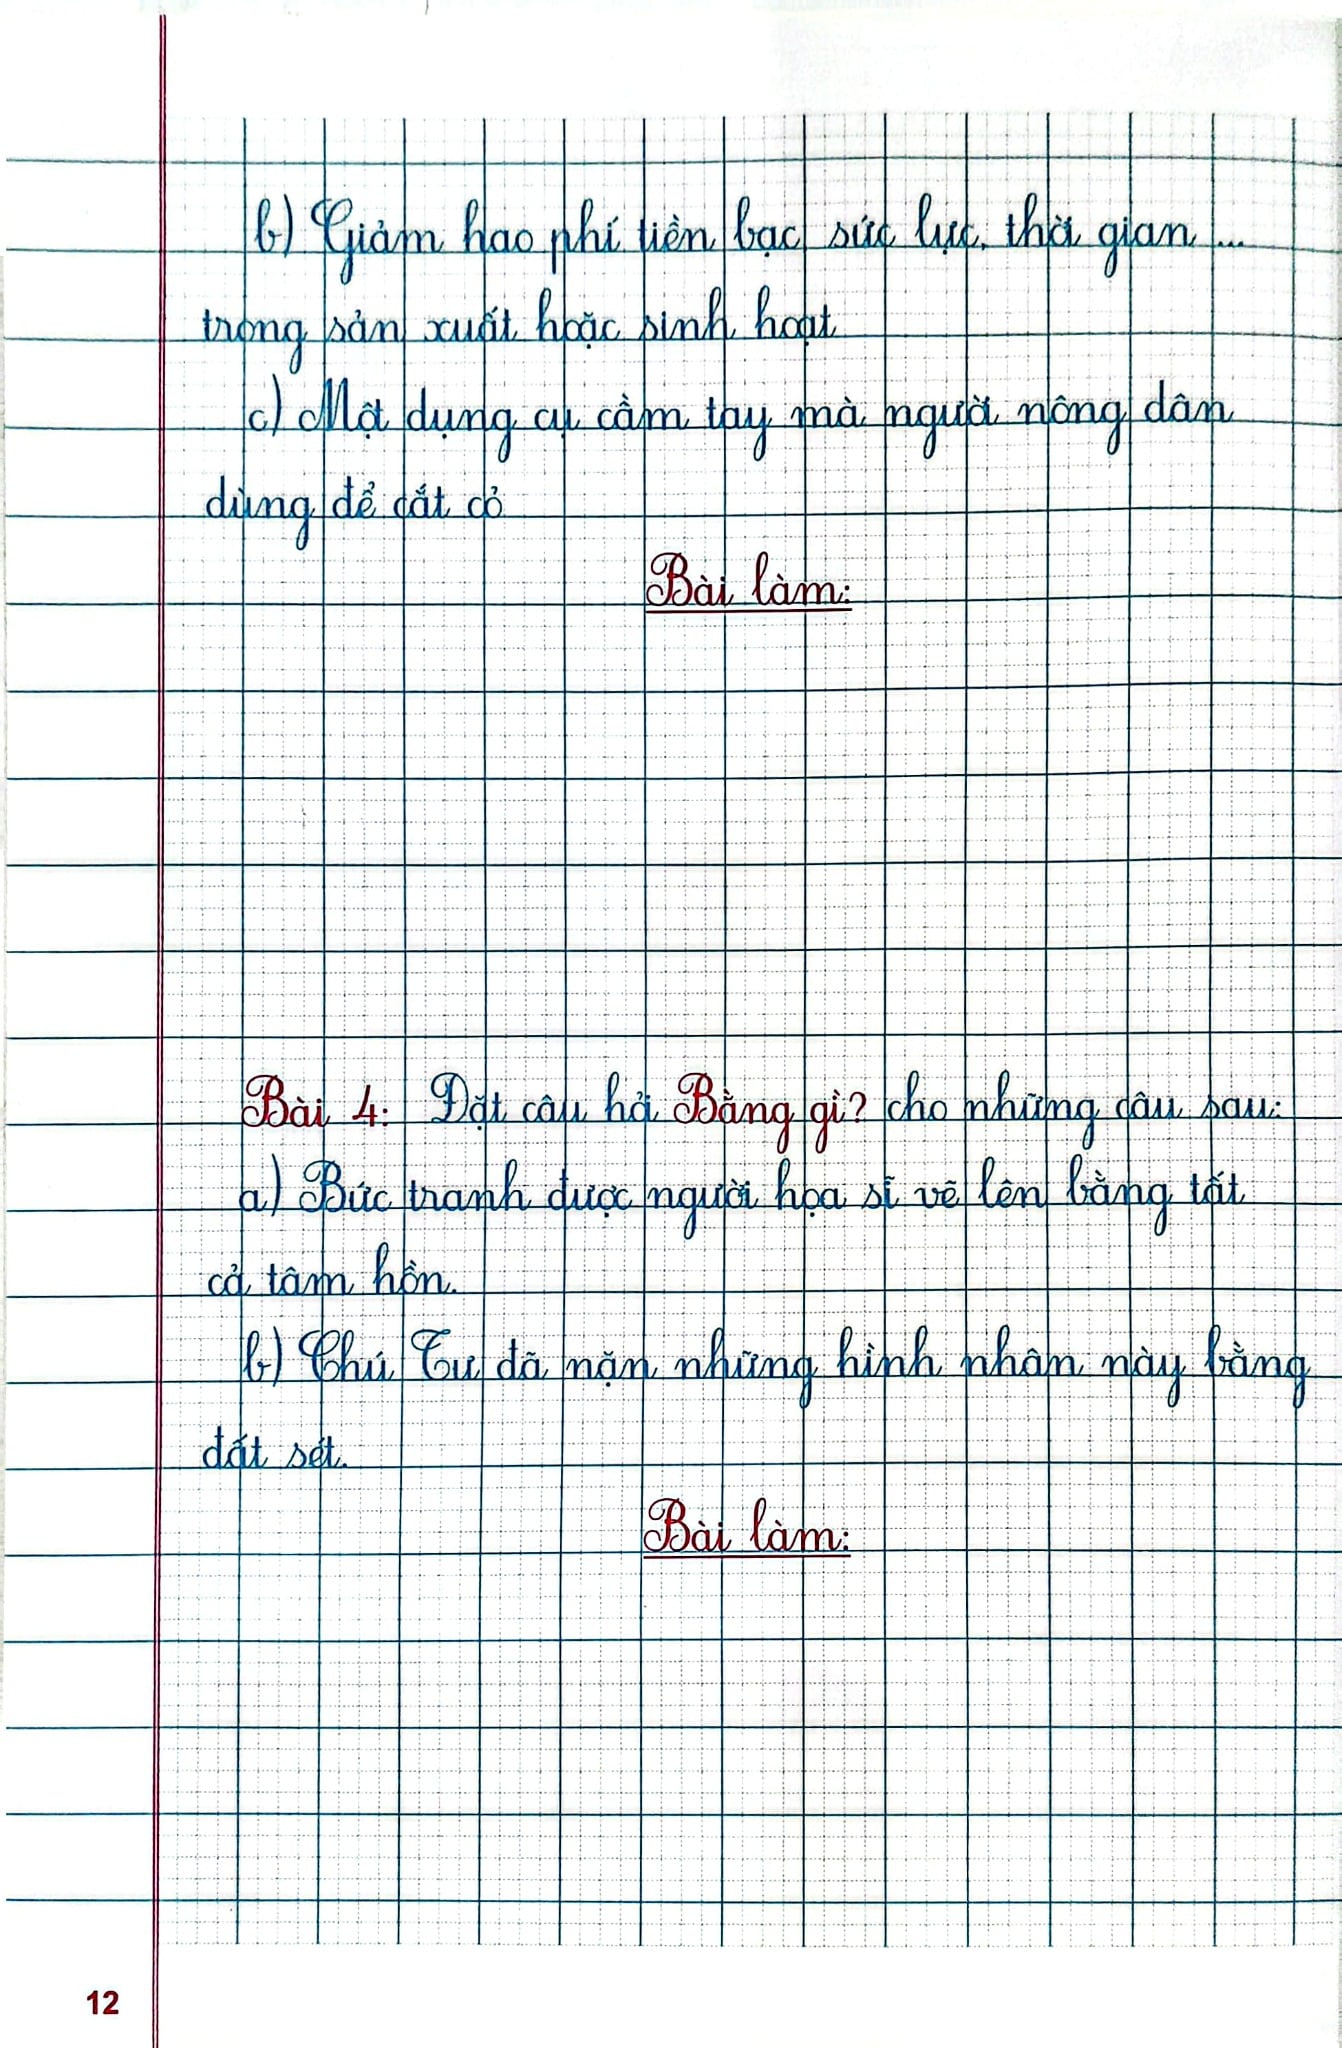 b) Giảm hao phí tiền bạc, sức lực, thời gian ...
trong sản xuất hoặc sinh hoạt
c) Một dụng cụ cầm tay mà người nông dân
dùng để cắt cỏ
Bài làm:
Bài 4: Đặt câu hỏi Bằng gì? cho những câu sau:
a) Bức tranh được người họa sĩ vẽ lên bằng tất
cả tâm hồn.
b) Chú Tư đã nặn những hình nhân này bằng
đất sét.
Bài làm:
12